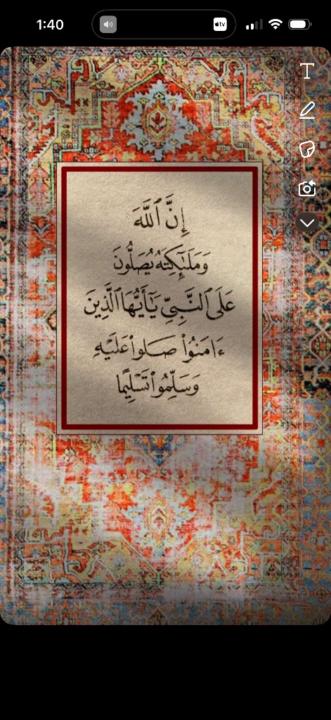 1:40
tv
T
إِنَّ ٱللَّهَ
وَمَلَٰٓئِكَتَهُۥ يُصَلُّونَ
عَلَى ٱلنَّبِيِّ يَٰٓأَيُّهَا ٱلَّذِينَ
ءَامَنُوا۟ صَلُّوا۟ عَلَيْهِ
وَسَلِّمُوا۟ تَسْلِيمًا